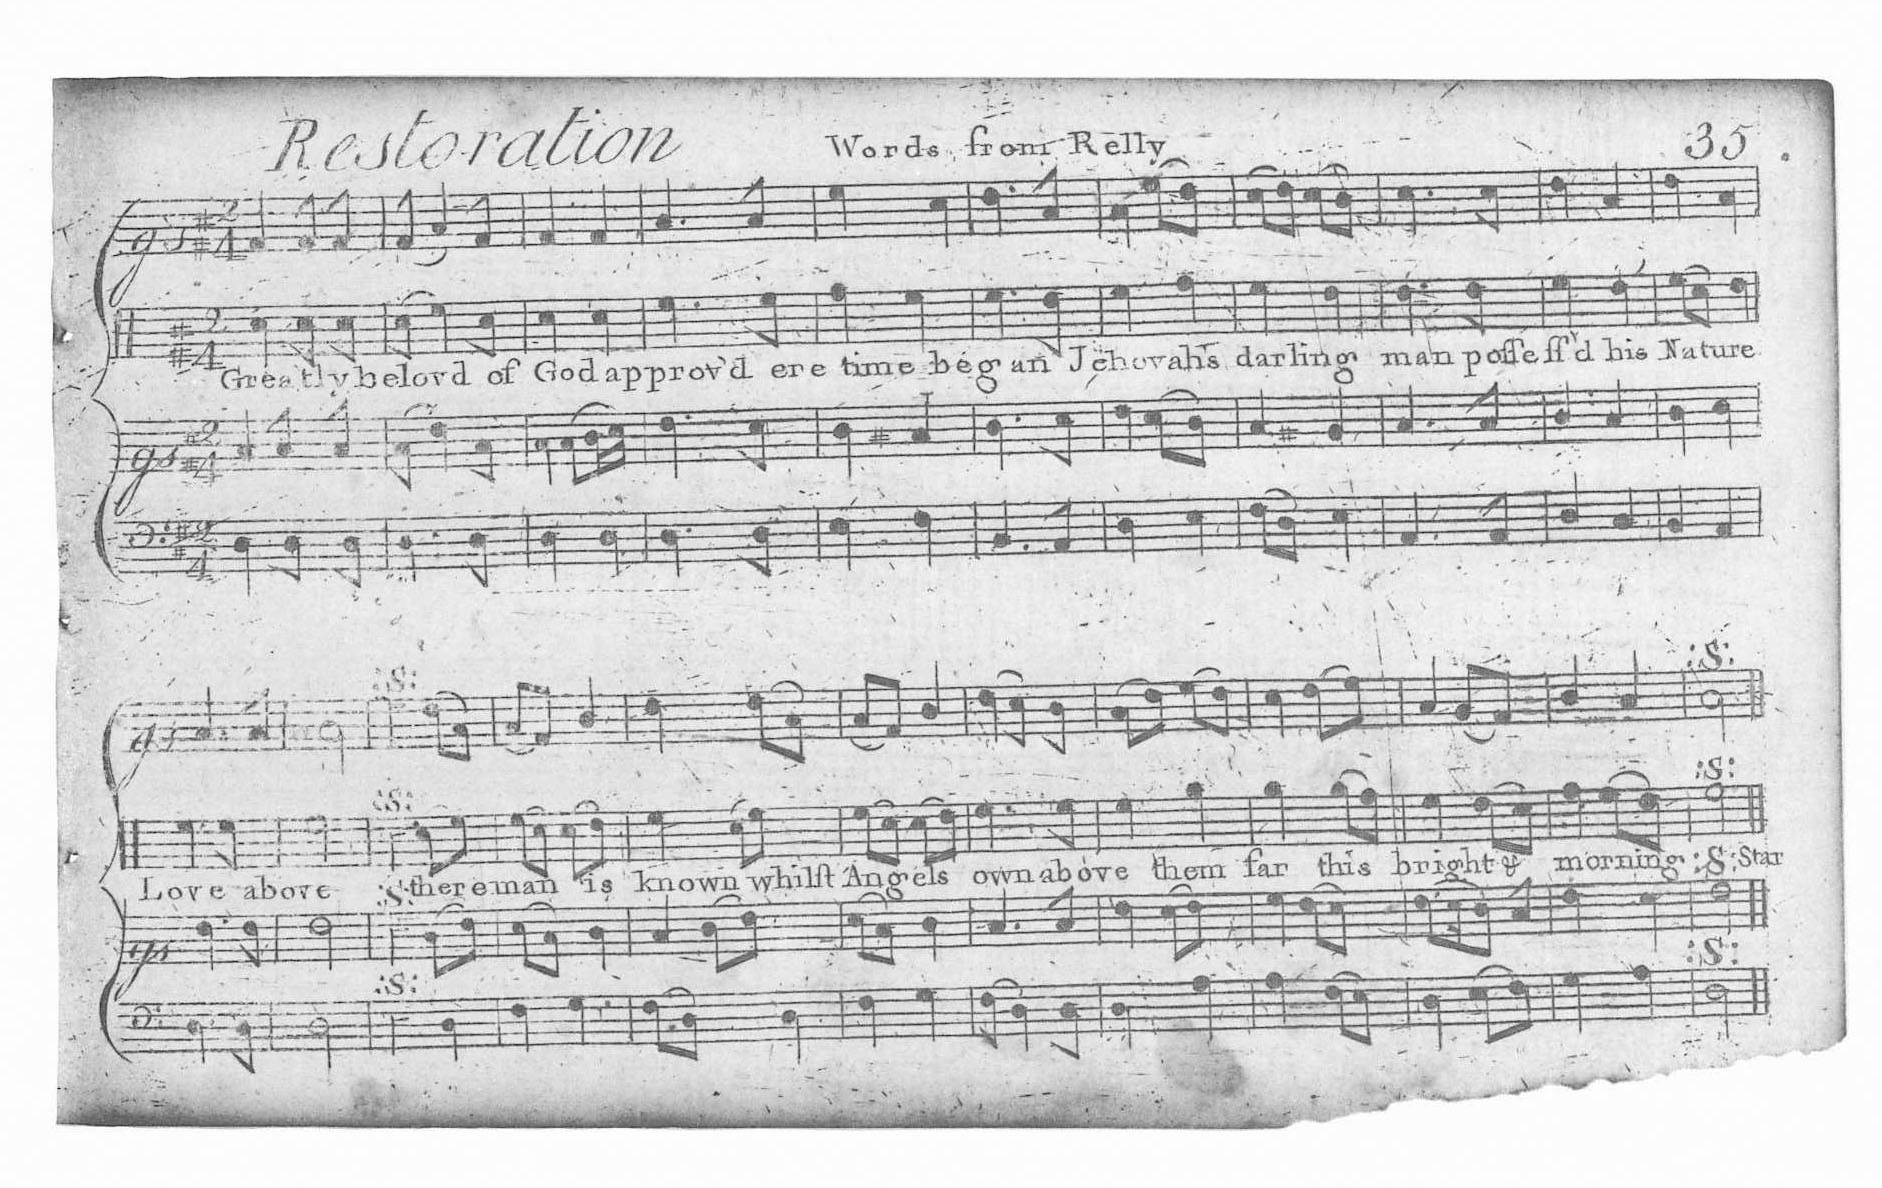 Restoration Words from Relly 35.
Greatly belov'd of God approv'd ere time began Jehovah's darling man possess'd his Nature
Love above :S: there man is known whilst Angels own above them far this bright & morning :S: Star